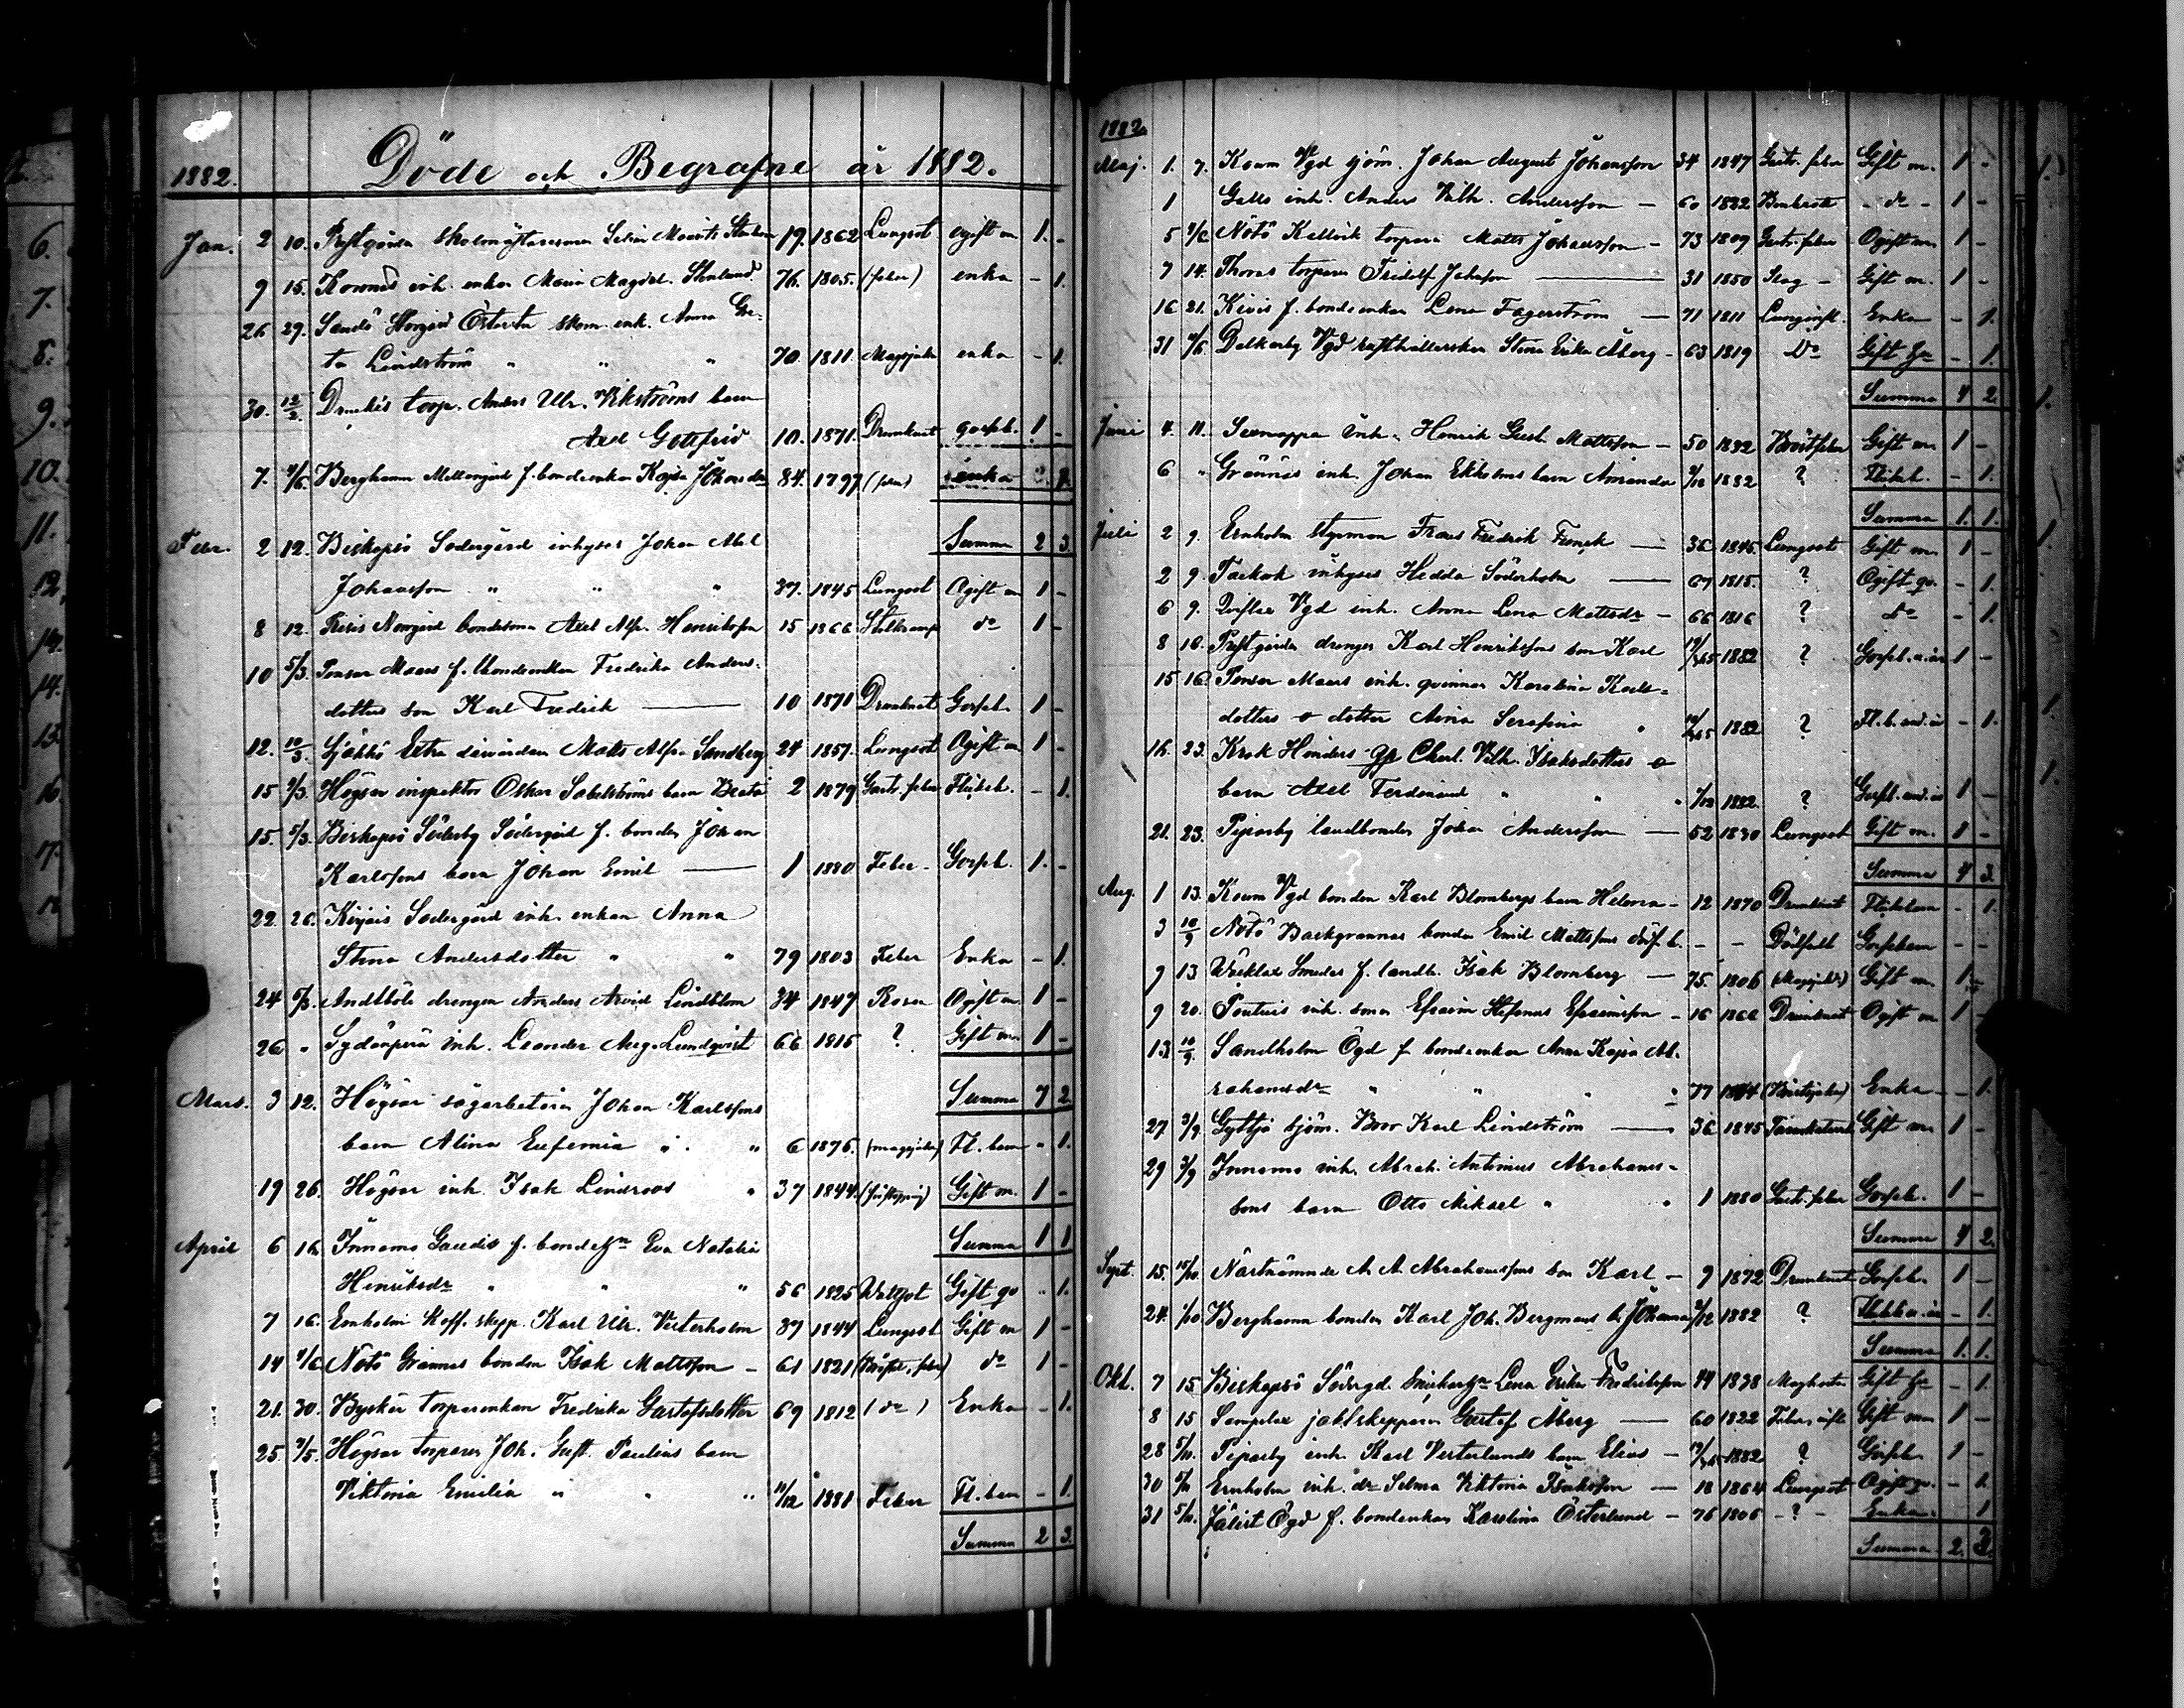 Döde och Begrafne år 1882.
1882.
Jan. 2 10. Prestgården skolmästaresonen 19. 1862 Lungsot ogift m 1. -
9 15. inh. enkan Maria Magdal. 76. 1805. (feber) enka - 1.
26 29. Sandö Storgård Österta enk. Anna Gre-
ta Lindström " " " 70. 1811. Magsjukd. enka - 1.
30. 12/2 torp. Anders Ulr. Vikströms barn
Axel Gottfrid 10. 1871. Drunknat gossb. 1 -
7. Berghamn Mellangård f. bondeenkan Kajsa Johansdr 84. 1797. (feber) enka
Summa 2 3.
Febr. 2 12. Biskopsö Södergård inhyses Johan Abel
Johansson " " " 37. 1845 Lungsot Ogift m 1 -
8 12. Norrgård bondesonen Axel Alfr. Henriksson 15 1866 Stelkramp do 1 -
10 5/3. f. bondeenkan Fredrika Anders-
dotters son Karl Fredrik 10 1871 Drunknat Gossb. 1 -
12. 10/3. Matts Alfr. Sandberg 24 1857. Lungsot Ogift m 1 -
15 Högsar inspektor Oskar Sabelströms barn Beata 2 1879 Gastr. feber Flickb. - 1.
15. 5/3. Biskopsö Söderby Södergård f. bonden Johan
Karlssons barn Johan Emil 1 1880 Feber Gossb. 1. -
22. 26. Södergård inh. enkan Anna
Stina Andersdotter " " 79 1803 Feber Enka - 1.
24 5/3. Andböle drengen Anders Arvid Lindblom 34 1847 Rosen Ogift m 1 -
26 " Sydänperä inh. Leander Aug. Lundqvist 66 1815 ? Gift m. 1 -
Summa 7 2
Mars. 3 12. Högsar sågarbetaren Johan Karlssons
barn Alina Eufemia " " 6 1876. (magsjukd) Fl. barn " 1.
19 26. Högsar inh. Isak Lindroos " 37 1844. Gift m. 1 -
Summa 1 1
April 6 16. Innamo f. bondehn Eva Natalia
Henriksdr " " " 56 1825 Wattsot Gift qv " 1.
7 16. Ernholm skepp. Karl Ulr. Vesterholm 37 1844 Lungsot Gift m 1 -
14 Nötö Grännäs bonden Isak Mattsson - 61 1821 do 1 -
21. 30. Byskär torpareenkan Fredrika Gustafsdotter 69 1812 (do) Enka - 1.
25. 7/5. Högsar torparen Joh. Gust. Paulins barn
Viktoria Emilia " " " 11/12 1881 Feber Fl. barn - 1.
Summa 2 3.
1882.
Maj. 1. 7. Koum Vgd sjöm. Johan August Johansson 34 1847 Gastr. feber Gift m. 1 -
1 inh. Anders Vilh. Andersson - 60 1822 Benbrott - do - 1 -
5 Nötö Kellvik torparen Matts Johansson - 73 1809 Gastr. feber Ogift m. 1 -
7 14. Thoras torparen Fridolf Johnsson 31 1850 Slag - Gift m. 1 -
16 21. Kivis f. bondeenkan Lena Fagerström 71 1811 Lunginfl. Enka - 1.
31 4/6. Dalkarby Vgd Stina Erika Åberg - 63 1819 Do Gift hu - 1.
Summa 4 2
Juni 4. 11. inh. Henrik Gust. Mattsson - 50 1832 Bröstfeber Gift m 1 -
6 " Grännäs inh. Johan Ekholms barn Amanda 1882 ? Flickb. - 1.
Summa 1. 1.
Juli 2 9. Ernholm styrman Frans Fredrik Funck 36 1846. Lungsot Gift m 1 -
2 9. Packork inhyses Hedda Söderholm 67 1815. ? Ogift qv. - 1.
6 9. Vgd inh. Anna Lena Mattsdr - 66 1816 ? do - 1.
8 16. Prestgården drengen Karl Henrikssons son Karl 1882 ? Gossb. u. år 1 -
15 16. inh. qvinnan Karolina Karls-
dotters o dotter Aina Serafina " 1882 ? Fl. b. und. år - 1.
16. 23. Krok Hinders Charl. Vilh. Isaksdotters o
barn Axel Ferdinand " " 1882. ? Gossb. und. år 1 -
21. 23. Piparby landbonden Johan Andersson 52 1830 Lungsot Gift m. 1 -
Summa 4 3.
Aug. 1 13. Koum Vgd bonden Karl Blombergs barn Helena - 12 1870 Drunknat Flickbarn - 1.
3 10/9 Nötö Backgrannas bonden Emil Mattssons döf. b. - - Dödfödt Gossbarn - -
9 13 Smedas f. landb. Isak Blomberg 75. 1806 (Magsjukd) Gift m. 1 -
9 20. inh. sonen Efraim Stefanus Efraimsson - 16 1866 Drunknat Ogift m 1 -
13. 10/9. Sandholm Ögd f. bondeenkan Anna Kajsa Ab-
rahamsdr " " " 77 Enka - 1.
27 3/9. Gyttja sjöm. Karl Lindström 36 1845 Gift m 1 -
29 3/9 Innamo inh. Abrah. Antonius Abrahams-
sons barn Otto Mikael " " 1 1880 Gastr. feber Gossb. 1 -
Summa 4 2.
Sept. 15. 15/10. Näst nämnde A. A. Abrahamssons son Karl - 9 1872 Drunknat Gossb. 1 -
24. 1/10 Berghamn bonden Karl Joh. Bergmans b. Johanna 1882 ? Flickb. u. år - 1.
Summa 1. 1.
Okt. 7 15 Biskopsö Södergd. Lena Erika Fredriksson 44 1838 Gift hu - 1.
8 15 jaktskepparen Gustaf Åberg 60 1822 Gift man 1 -
28 5/11. Piparby inh. Karl Vesterlunds barn Elias - 1882 ? Gossb. 1 -
30 5/11 Ernholm inh. dr Selma Viktoria Isaksson 18 1864 Lungsot Ogift qv. - 1.
31 5/11. Jälist Ögd f. bondenkan Karolina Österlund - 76 1806 - ? - Enka 1
Summa 2. 3.